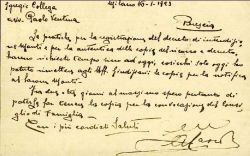 Egregio Collega
Milano 16-1-1923
avv. Paolo Ventura
Brescia
Le pratiche per la registrazione del decreto di interdizione
e per la autentica delle copie del ricorso e decreto,
hanno richiesto tempo sino ad oggi, cosicchè solo oggi ho
potuto rimettere agli Uff. Giudiziari la copia per la notifica
al
Fra giorni al massimo spero pertanto di
poterLe far tenere la copia per la convocazione del Consi-
glio di Famiglia.
Con i più cordiali Saluti